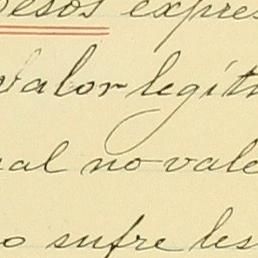 pesos expres
valor legíti
ual no vale
o sufre les